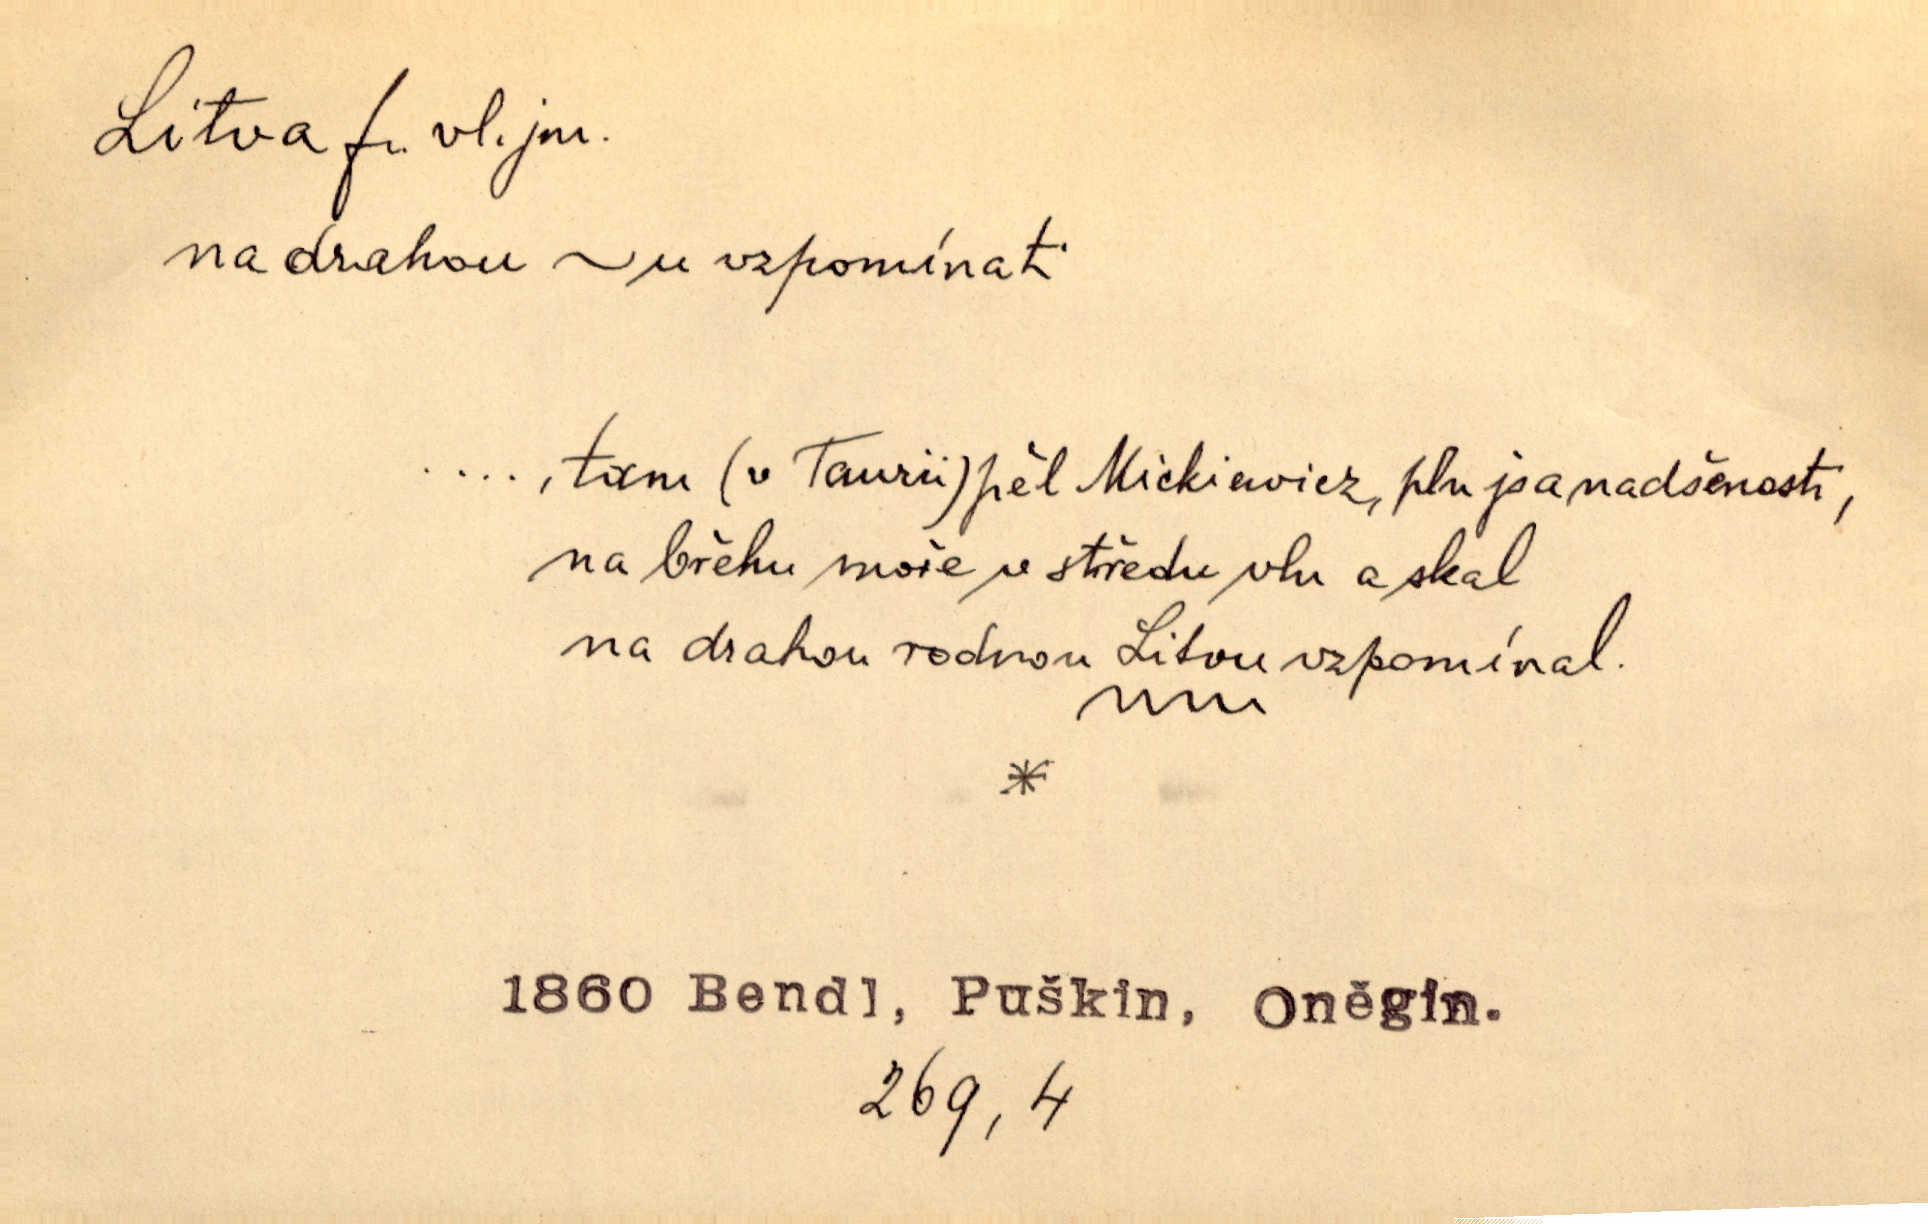 Litva f. vl. jm.
na drahou ~u vzpomínati
...., tam (v Taurii) pěl Mickiewicz, pln jsa nadšenosti,
na břehu moře v středu vln a skal
na drahou rodnou Litvu vzpomínal.
*
1860 Bendl, Puškin, Oněgin.
269, 4